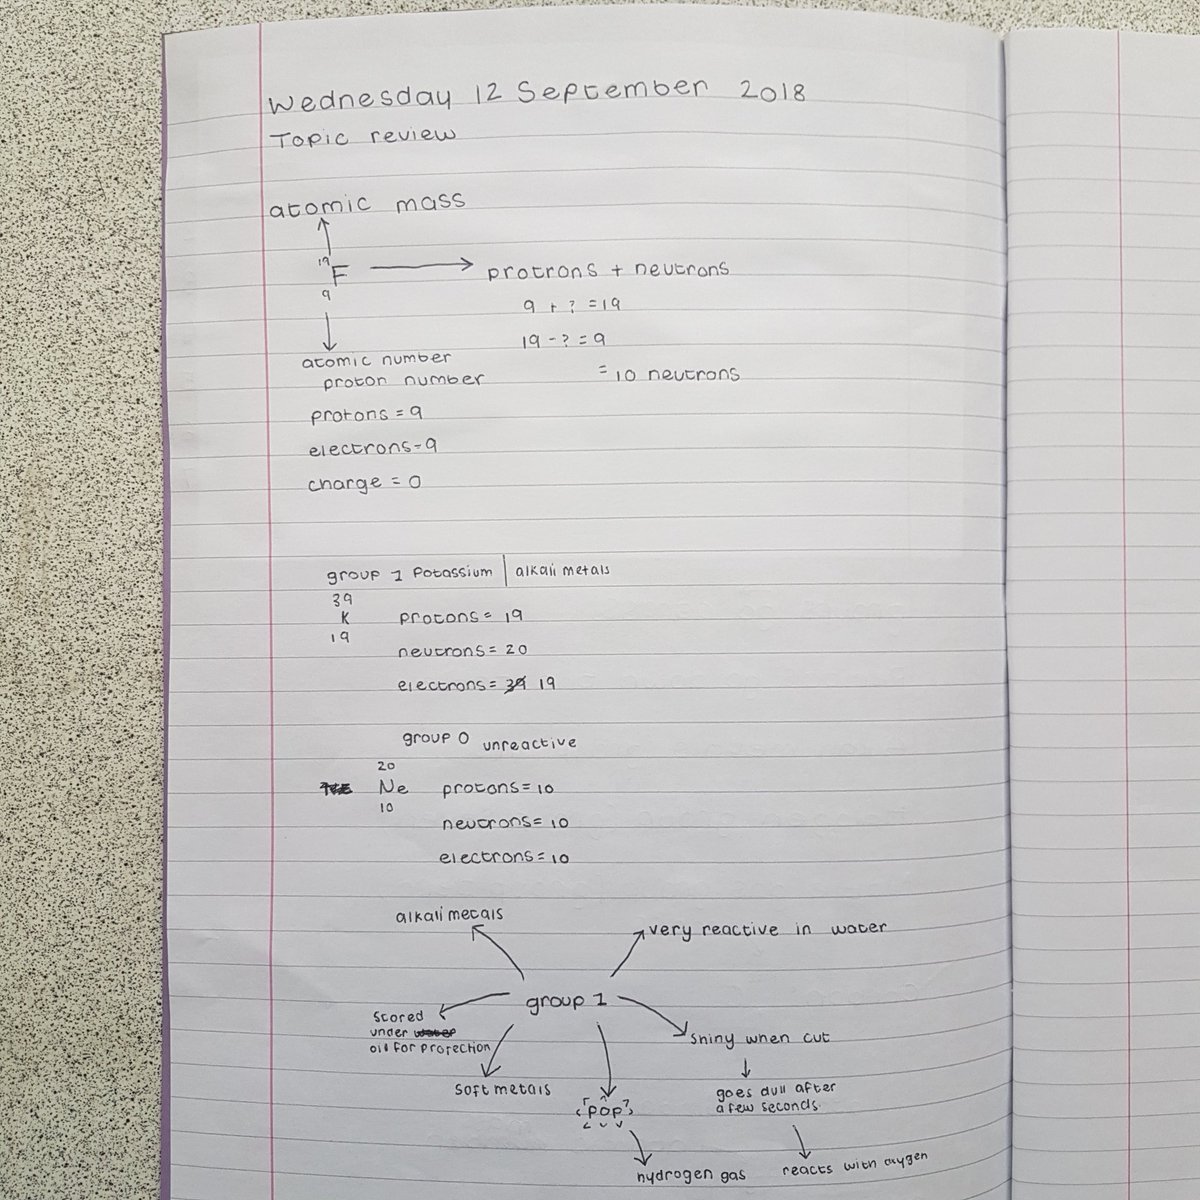 Wednesday 12 September 2018
Topic review
atomic mass
19
F
9
protrons + neutrons
9 + ? = 19
19 - ? = 9
= 10 neutrons
atomic number
proton number
protons = 9
electrons - 9
charge = 0
group 1 Potassium | alkali metals
39
K
19
protons = 19
neutrons = 20
electrons = 39 19
group 0 unreactive
20
Ne
10
protons = 10
neutrons = 10
electrons = 10
alkali metals
very reactive in water
group 1
Stored
under water
oil for protection
soft metals
pop
hydrogen gas
shiny when cut
goes dull after
a few seconds
reacts with oxygen